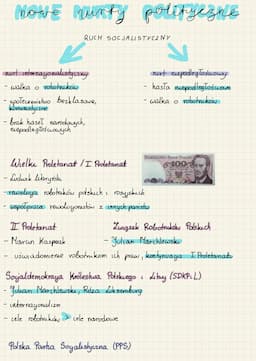 NOWE NURTY POLITYCZNE
nowe nurty polityczne
RUCH SOCJALISTYCZNY
nurt internacjonalistyczny
nurt niepodległościowy
- walka o robotników
- hasła niepodległościowe
- społeczeństwo bezklasowe,
- walka o robotników
komunistyczne
- brak haseł narodowych,
niepodległościowych
Wielki Proletariat / I Proletariat
- Ludwik Waryński
- rewolucja robotników polskich i rosyjskich
- współpraca rewolucjonistów z innych państw
100
II Proletariat
Związek Robotników Polskich
- Marcin Kasprzak
- Julian Marchlewski
- uświadomienie robotnikom ich praw, kontynuacja I Proletariatu
Socjaldemokracja Królestwa Polskiego i Litwy (SDKPiL)
- Julian Marchlewski, Róża Luksemburg
- internacjonalizm
- cele robotników > cele narodowe
Polska Partia Socjalistyczna (PPS)